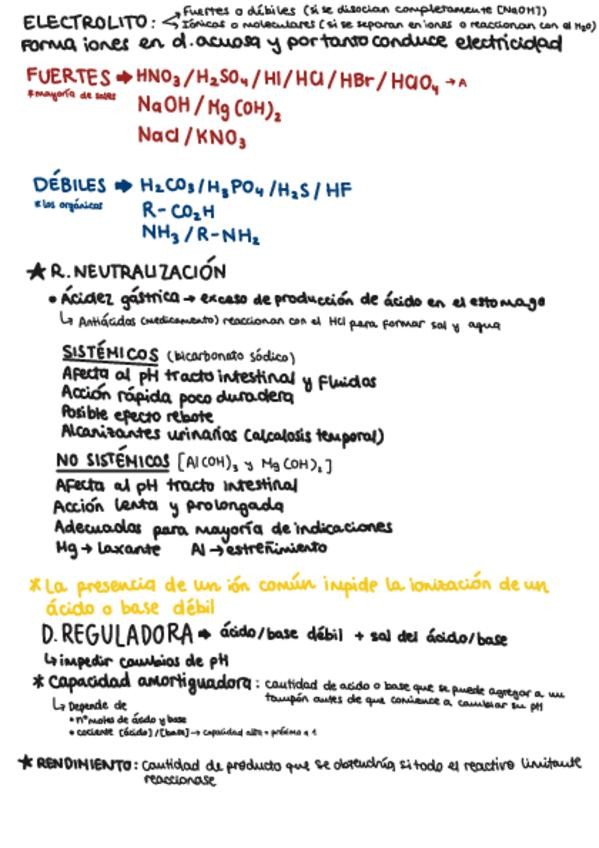 ELECTROLITO: Fuertes o débiles (si se disocian completamente [NaOH])
Iónicas o moleculares (si se separan en iones o reaccionan con el H₂O)
Forma iones en d. acuosa y por tanto conduce electricidad
FUERTES → HNO₃/H₂SO₄/HI/HCl/HBr/HClO₄ → A
*mayoría de sales
NaOH/Mg(OH)₂
NaCl/KNO₃
DÉBILES → H₂CO₃/H₃PO₄/H₂S/HF
*los orgánicos
R-CO₂H
NH₃/R-NH₂
★ R. NEUTRALIZACIÓN
• Ácidez gástrica → exceso de producción de ácido en el estomago
↳ Antiácidos (medicamento) reaccionan con el HCl para formar sal y agua
SISTÉMICOS (bicarbonato sódico)
Afecta al pH tracto intestinal y Fluidos
Acción rápida poco duradera
Posible efecto rebote
Alcanizantes urinarios (alcalosis temporal)
NO SISTÉMICOS [Al(OH)₃ y Mg(OH)₂]
Afecta al pH tracto intestinal
Acción lenta y prolongada
Adecuados para mayoría de indicaciones
Mg → laxante Al → estreñimiento
*La presencia de un ión común impide la ionización de un
ácido o base débil
D. REGULADORA → ácido/base débil + sal del ácido/base
↳ impedir cambios de pH
* Capacidad amortiguadora: cantidad de acido o base que se puede agregar a un
tampón antes de que comience a cambiar su pH
↳ Depende de
• nº moles de ácido y base
• cociente [ácido]/[base] → capacidad alta = próximo a 1
★ RENDIMIENTO: Cantidad de producto que se obtendría si todo el reactivo limitante
reaccionase